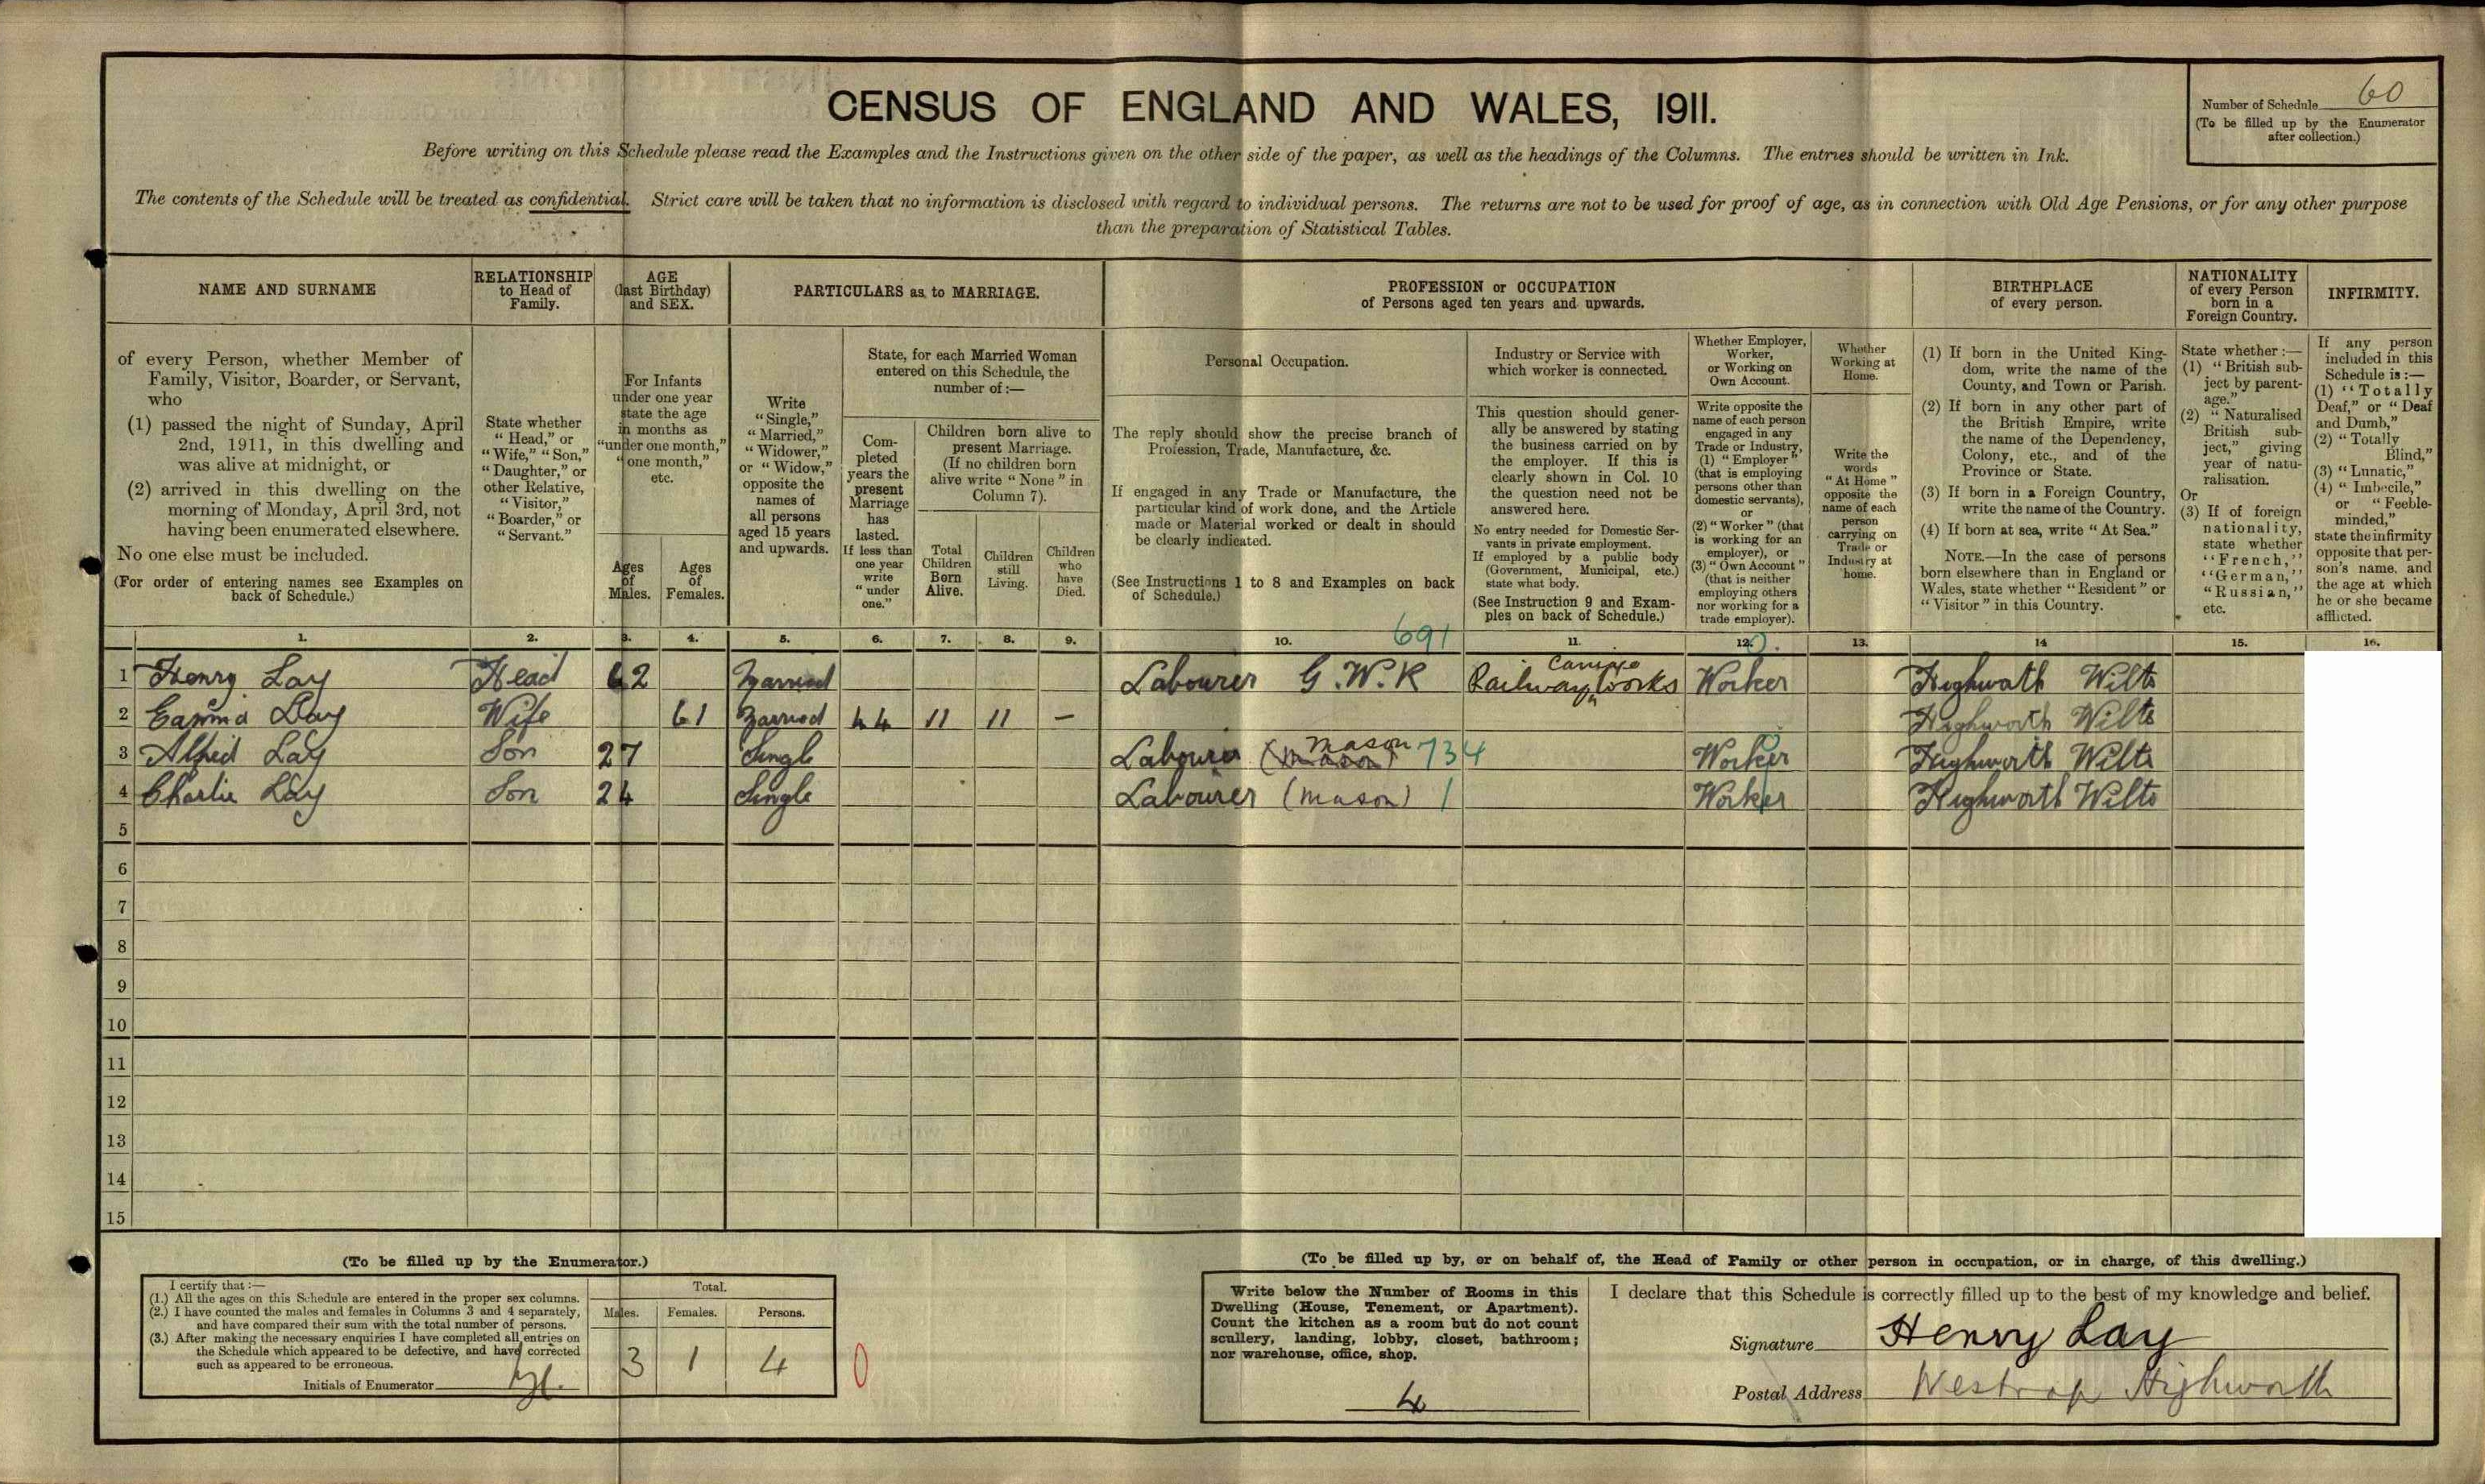 CENSUS OF ENGLAND AND WALES, 1911.
Number of Schedule 60
(To be filled up by the Enumerator
after collection.)
Before writing on this Schedule please read the Examples and the Instructions given on the other side of the paper, as well as the headings of the Columns. The entries should be written in Ink.
The contents of the Schedule will be treated as confidential. Strict care will be taken that no information is disclosed with regard to individual persons. The returns are not to be used for proof of age, as in connection with Old Age Pensions, or for any other purpose
than the preparation of Statistical Tables.
NAME AND SURNAME
of every Person, whether Member of
Family, Visitor, Boarder, or Servant,
who
(1) passed the night of Sunday, April
2nd, 1911, in this dwelling and
was alive at midnight, or
(2) arrived in this dwelling on the
morning of Monday, April 3rd, not
having been enumerated elsewhere.
No one else must be included.
(For order of entering names see Examples on
back of Schedule.)
RELATIONSHIP
to Head of
Family.
State whether
"Head," or
"Wife," "Son,"
"Daughter," or
other Relative,
"Visitor,"
"Boarder," or
"Servant."
AGE
(last Birthday)
and SEX.
For Infants
under one year
state the age
in months as
"under one month,"
"one month,"
etc.
Ages
of
Males.
Ages
of
Females.
PARTICULARS as to MARRIAGE.
Write
"Single,"
"Married,"
"Widower,"
or "Widow,"
opposite the
names of
all persons
aged 15 years
and upwards.
State, for each Married Woman
entered on this Schedule, the
number of:—
Com-
pleted
years the
present
Marriage
has
lasted.
If less than
one year
write
"under
one."
Children born alive to
present Marriage.
(If no children born
alive write "None" in
Column 7).
Total
Children
Born
Alive.
Children
still
Living.
Children
who
have
Died.
PROFESSION or OCCUPATION
of Persons aged ten years and upwards.
Personal Occupation.
The reply should show the precise branch of
Profession, Trade, Manufacture, &c.
If engaged in any Trade or Manufacture, the
particular kind of work done, and the Article
made or Material worked or dealt in should
be clearly indicated.
(See Instructions 1 to 8 and Examples on back
of Schedule.)
Industry or Service with
which worker is connected.
This question should gener-
ally be answered by stating
the business carried on by
the employer. If this is
clearly shown in Col. 10
the question need not be
answered here.
No entry needed for Domestic Ser-
vants in private employment.
If employed by a public body
(Government, Municipal, etc.)
state what body.
(See Instruction 9 and Exam-
ples on back of Schedule.)
Whether Employer,
Worker,
or Working on
Own Account.
Write opposite the
name of each person
engaged in any
Trade or Industry,
(1) "Employer"
(that is employing
persons other than
domestic servants),
or
(2) "Worker" (that
is working for an
employer), or
(3) "Own Account"
(that is neither
employing others
nor working for a
trade employer).
Whether
Working at
Home.
Write the
words
"At Home"
opposite the
name of each
person
carrying on
Trade or
Industry at
home.
BIRTHPLACE
of every person.
(1) If born in the United King-
dom, write the name of the
County, and Town or Parish.
(2) If born in any other part of
the British Empire, write
the name of the Dependency,
Colony, etc., and of the
Province or State.
(3) If born in a Foreign Country,
write the name of the Country.
(4) If born at sea, write "At Sea."
NOTE.—In the case of persons
born elsewhere than in England or
Wales, state whether "Resident" or
"Visitor" in this Country.
NATIONALITY
of every Person
born in a
Foreign Country.
State whether:—
(1) "British sub-
ject by parent-
age."
(2) "Naturalised
British sub-
ject," giving
year of natu-
ralisation.
Or
(3) If of foreign
nationality,
state whether
"French,"
"German,"
"Russian,"
etc.
INFIRMITY.
If any person
included in this
Schedule is:—
(1) "Totally
Deaf," or "Deaf
and Dumb,"
(2) "Totally
Blind,"
(3) "Lunatic,"
(4) "Imbecile,"
or "Feeble-
minded,"
state the infirmity
opposite that per-
son's name, and
the age at which
he or she became
afflicted.
1. 2. 3. 4. 5. 6. 7. 8. 9. 10. 691 11. 12. 13. 14 15. 16.
1 Henry Lay Head 62 Married Labourer G.W.R Railway Works Worker Highworth Wilts
2 Emma Lay Wife 61 Married 44 11 11 — Highworth Wilts
3 Alfred Lay Son 27 Single Labourer mason 734 Worker Highworth Wilts
4 Charlie Lay Son 24 Single Labourer (mason) 1 Worker Highworth Wilts
5
6
7
8
9
10
11
12
13
14
15
(To be filled up by the Enumerator.)
I certify that:—
(1.) All the ages on this Schedule are entered in the proper sex columns.
(2.) I have counted the males and females in Columns 3 and 4 separately,
and have compared their sum with the total number of persons.
(3.) After making the necessary enquiries I have completed all entries on
the Schedule which appeared to be defective, and have corrected
such as appeared to be erroneous.
Initials of Enumerator
Total.
Males. Females. Persons.
3 1 4 0
(To be filled up by, or on behalf of, the Head of Family or other person in occupation, or in charge, of this dwelling.)
Write below the Number of Rooms in this
Dwelling (House, Tenement, or Apartment).
Count the kitchen as a room but do not count
scullery, landing, lobby, closet, bathroom;
nor warehouse, office, shop.
4
I declare that this Schedule is correctly filled up to the best of my knowledge and belief.
Signature Henry Lay
Postal Address Westrop Highworth